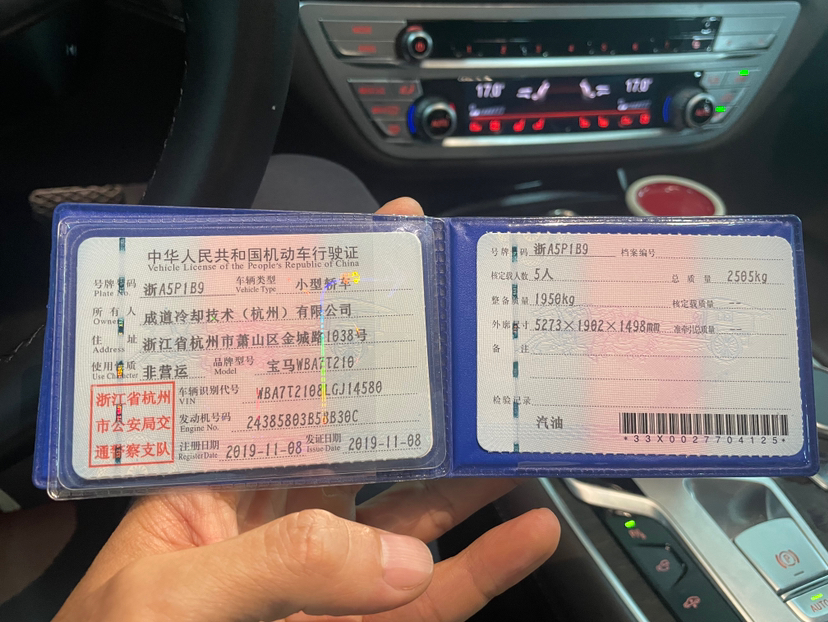 中华人民共和国机动车行驶证
Vehicle License of the People's Republic of China
号牌号码 浙A5P1B9 车辆类型 小型轿车
Plate No. Vehicle Type
所有人 成道冷却技术（杭州）有限公司
Owner
住址 浙江省杭州市萧山区金城路1038号
Address
使用性质 非营运 品牌型号 宝马WBA7T210
Use Character Model
浙江省杭州
市公安局交
通警察支队
车辆识别代号 WBA7T2108LGJ14580
VIN
发动机号码 24385803B58B30C
Engine No.
注册日期 2019-11-08 发证日期 2019-11-08
Register Date Issue Date
号牌号码 浙A5P1B9 档案编号
核定载人数 5人 总质量 2505kg
整备质量 1950kg 核定载质量 --
外廓尺寸 5273×1902×1498mm 准牵引总质量 --
备注
检验记录
汽油
*33X0027704125*
17.0 17.0
AUTO
AUTO